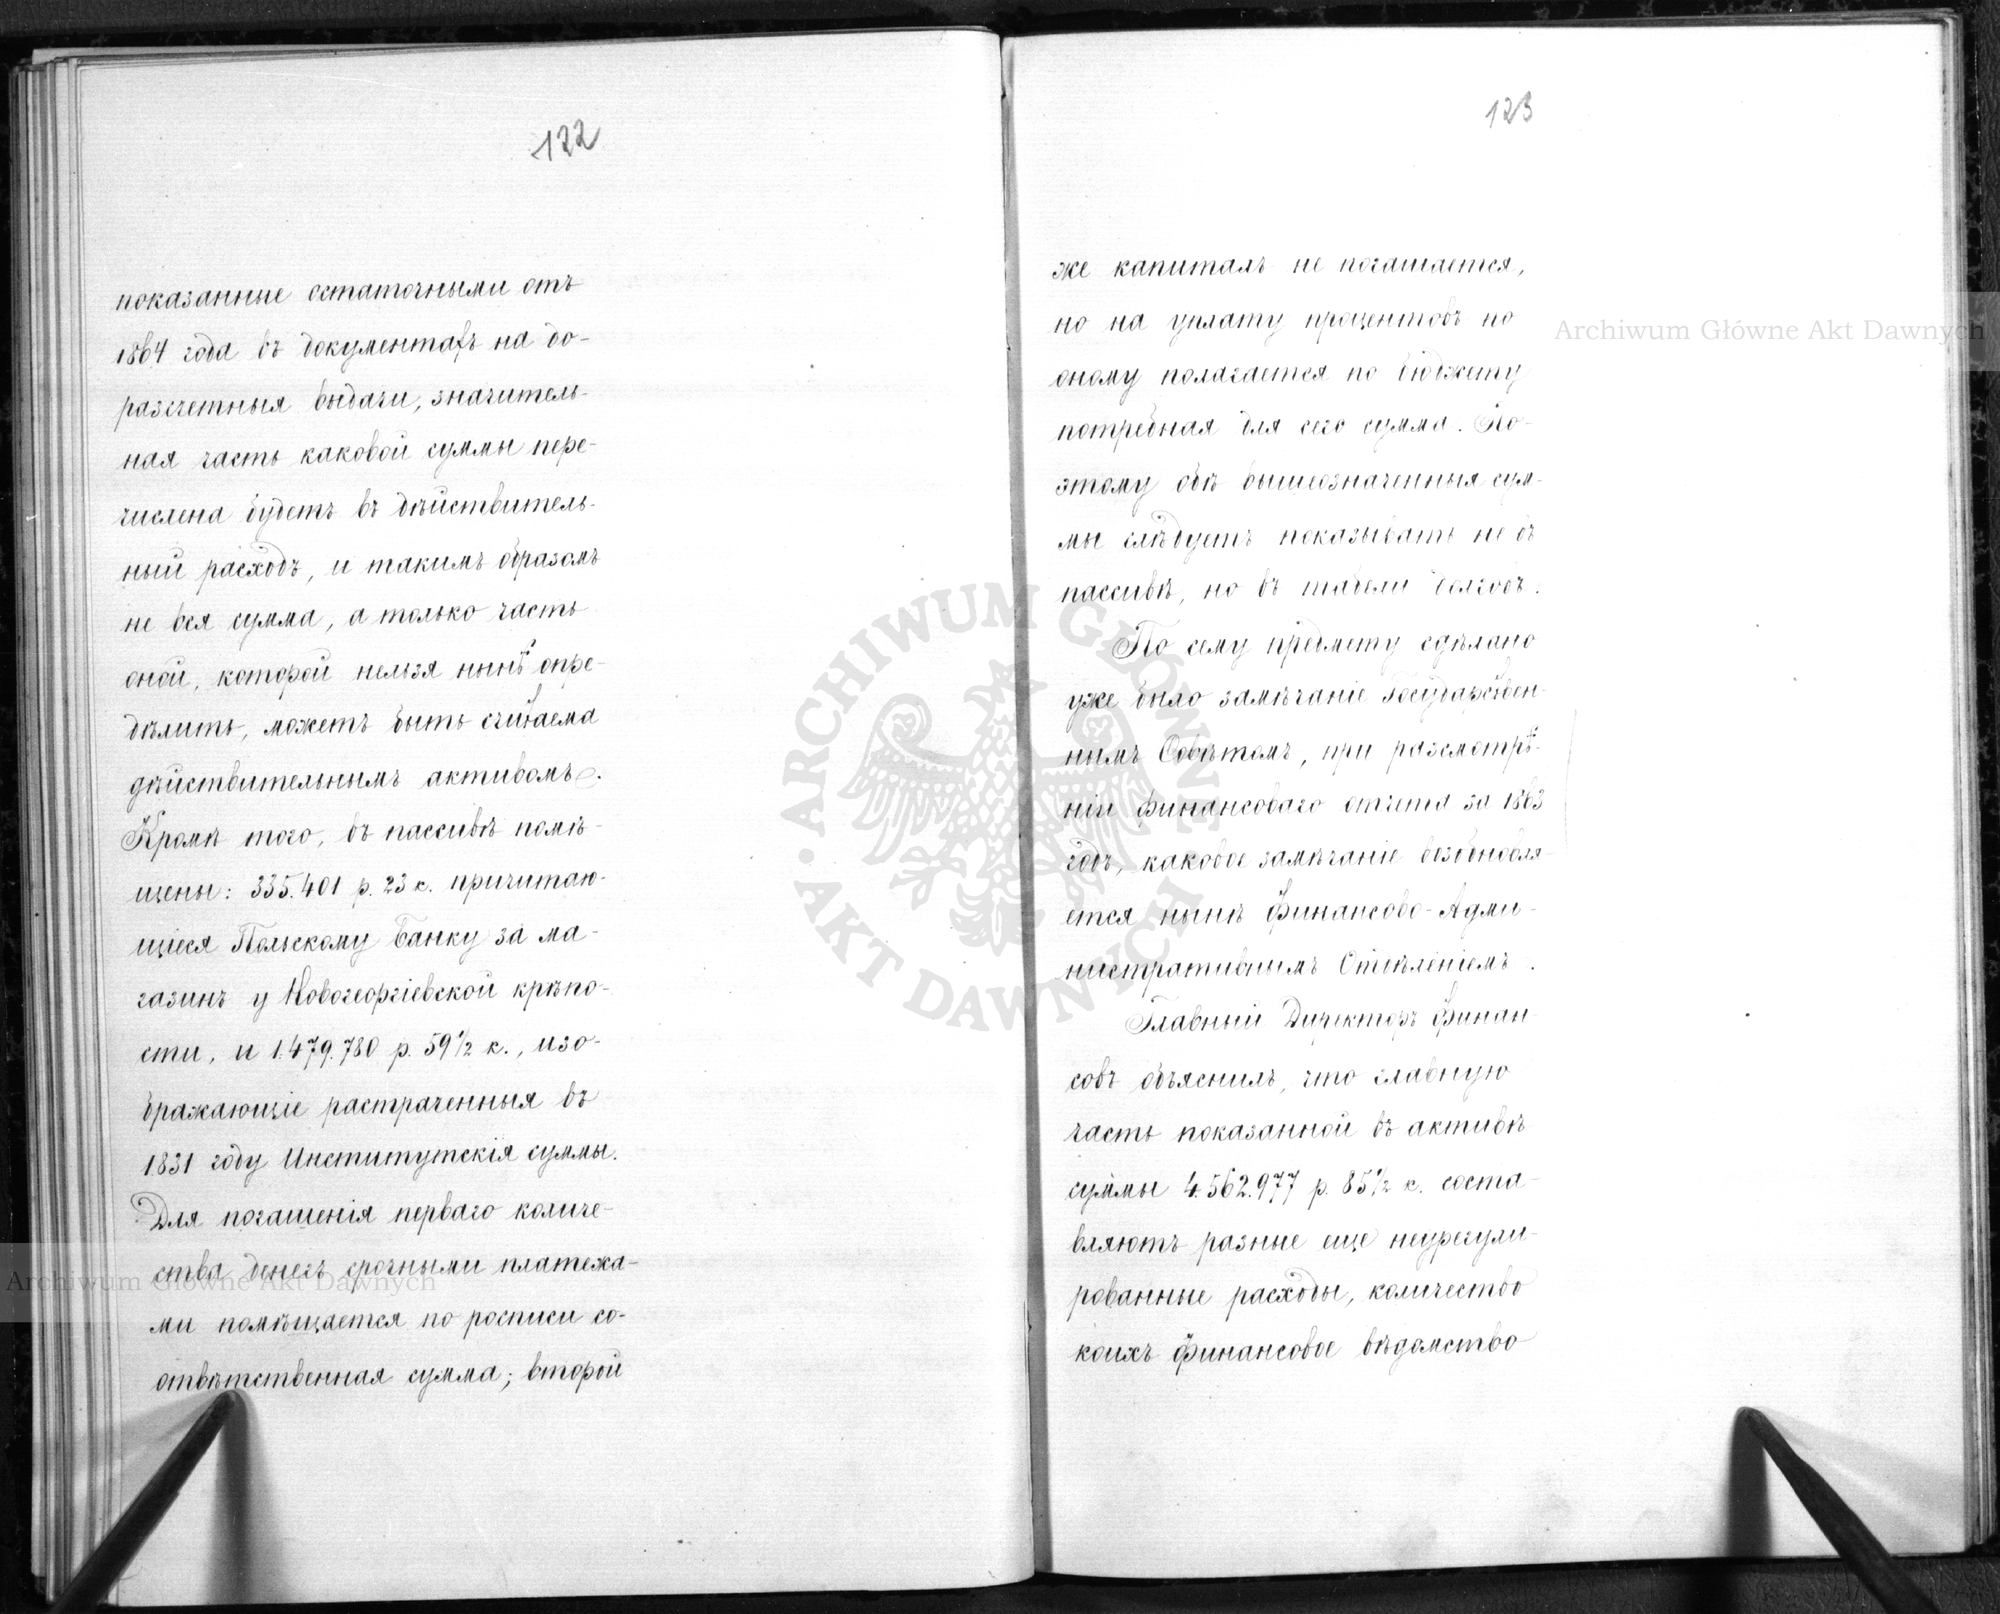 122
показанные остаточными отъ
1864 года въ документахъ на до-
разсчетныя выдачи, значитель-
ная часть каковой суммы пере-
числена будетъ въ дѣйствитель-
ный расходъ, и такимъ образомъ
не вся сумма, а только часть
оной, которой нельзя нынѣ опре-
дѣлить, можетъ быть считаема
дѣйствительнымъ активомъ.
Кромѣ того, въ пассивѣ помѣ-
щены: 335.401 р. 23 к. причитаю-
щіеся Польскому Банку за ма-
газинъ у Новогеоргіевской крѣпо-
сти, и 1.479.780 р. 59½ к., изо-
бражающіе растраченныя въ
1831 году Институтскія суммы.
Для погашенія перваго количе-
ства денегъ срочными платежа-
ми помѣщается по росписи со-
отвѣтственная сумма; второй
123
же капиталъ не погашается,
но на уплату процентовъ по
оному полагается по бюджету
потребная для сего сумма. По-
этому обѣ вышеозначенныя сум-
мы слѣдуетъ показывать не въ
пассивѣ, но въ табели долговъ.
По сему предмету сдѣлано
уже было замѣчаніе Государствен-
нымъ Совѣтомъ, при разсмотрѣ-
ніи финансоваго отчета за 1863
годъ, каковое замѣчаніе возобновля-
ется нынѣ Финансово-Адми-
нистративнымъ Отдѣленіемъ.
Главный Директоръ Финан-
совъ объяснилъ, что главную
часть показанной въ активѣ
суммы 4.562.977 р. 85½ к. соста-
вляютъ разные еще неурегули-
рованные расходы, количество
коихъ Финансовое вѣдомство
Archiwum Główne Akt Dawnych
Archiwum Główne Akt Dawnych
ARCHIWUM GŁÓWNE • AKT DAWNYCH